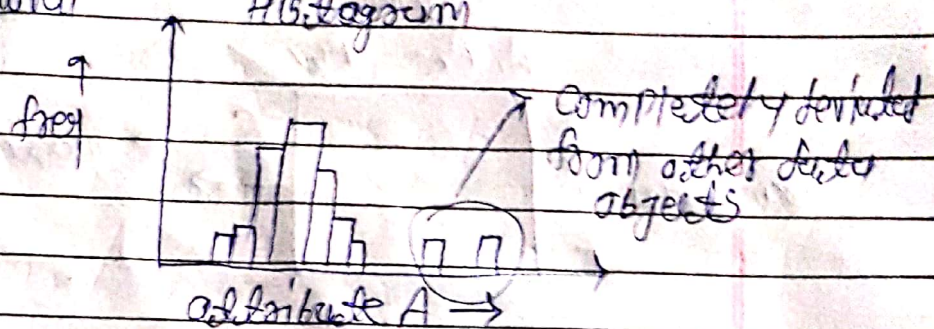 Histogram
freq
completely deviated
from other data
objects
attribute A